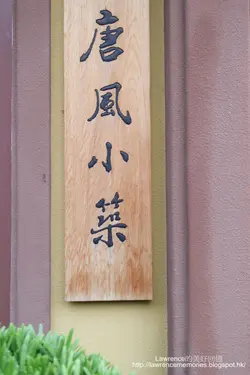 唐風小築
Lawrence的美好回憶
http://lawrencememories.blogspot.hk/